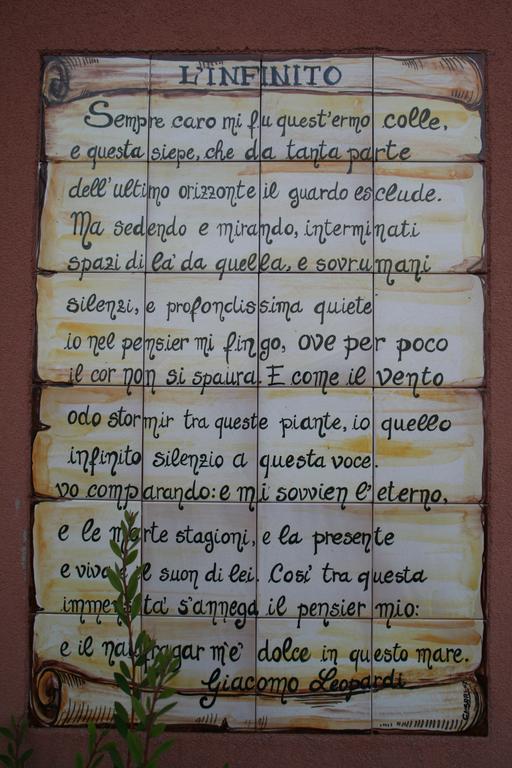 L'INFINITO
Sempre caro mi fu quest'ermo colle,
e questa siepe, che da tanta parte
dell'ultimo orizzonte il guardo esclude.
Ma sedendo e mirando, interminati
spazi di la' da quella, e sovrumani
silenzi, e profondissima quiete
io nel pensier mi fingo, ove per poco
il cor non si spaura. E come il vento
odo stormir tra queste piante, io quello
infinito silenzio a questa voce.
vo comparando: e mi sovvien l'eterno,
e le morte stagioni, e la presente
e viva e il suon di lei. Cosi' tra questa
immensita' s'annega il pensier mio:
e il naufragar m'e' dolce in questo mare.
Giacomo Leopardi